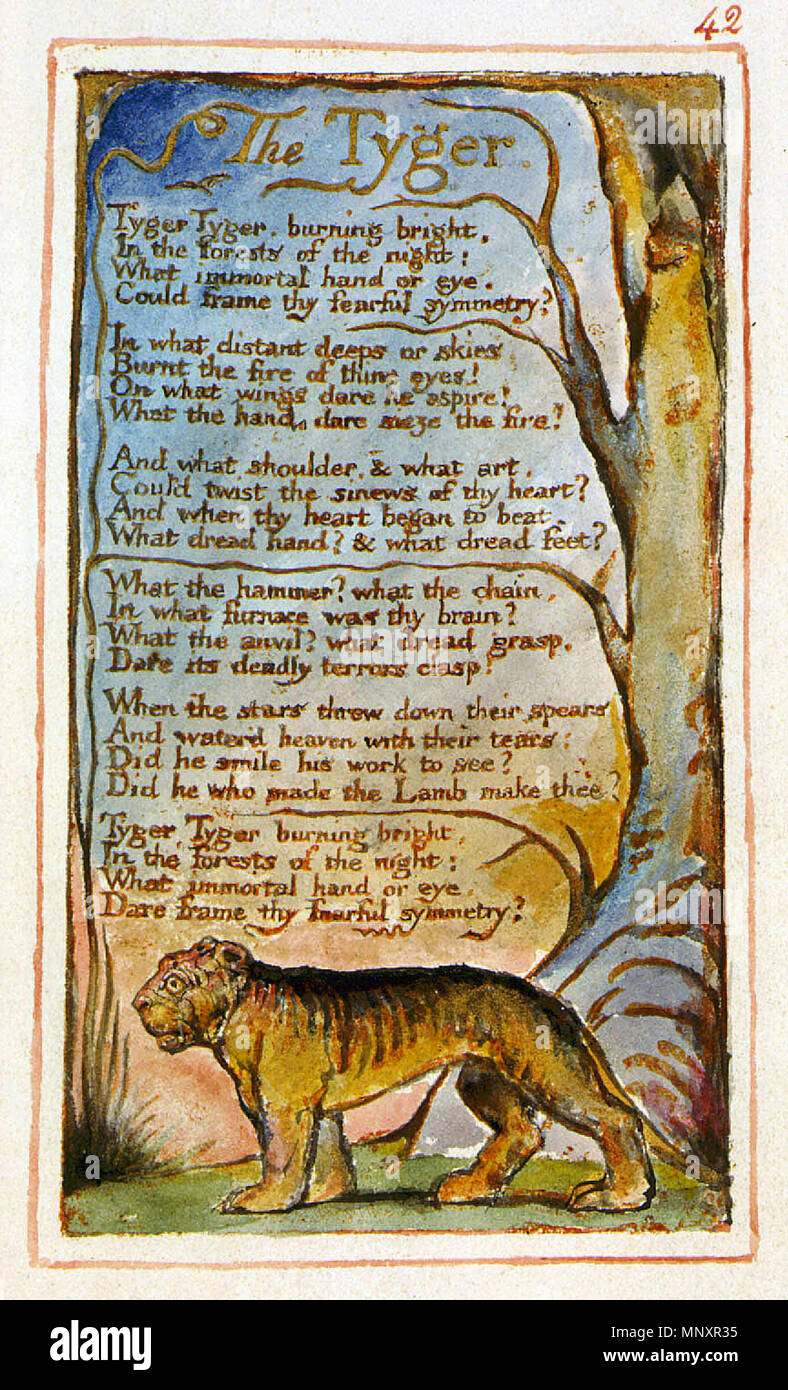 42
The Tyger.
Tyger Tyger. burning bright,
In the forests of the night:
What immortal hand or eye.
Could frame thy fearful symmetry?
In what distant deeps or skies.
Burnt the fire of thine eyes!
On what wings dare he aspire!
What the hand, dare sieze the fire?
And what shoulder, & what art,
Could twist the sinews of thy heart?
And when thy heart began to beat,
What dread hand? & what dread feet?
What the hammer? what the chain,
In what furnace was thy brain?
What the anvil? what dread grasp,
Dare its deadly terrors clasp!
When the stars threw down their spears
And water'd heaven with their tears:
Did he smile his work to see?
Did he who made the Lamb make thee?
Tyger Tyger burning bright,
In the forests of the night:
What immortal hand or eye,
Dare frame thy fearful symmetry?
alamy
Image ID: MNXR35
www.alamy.com